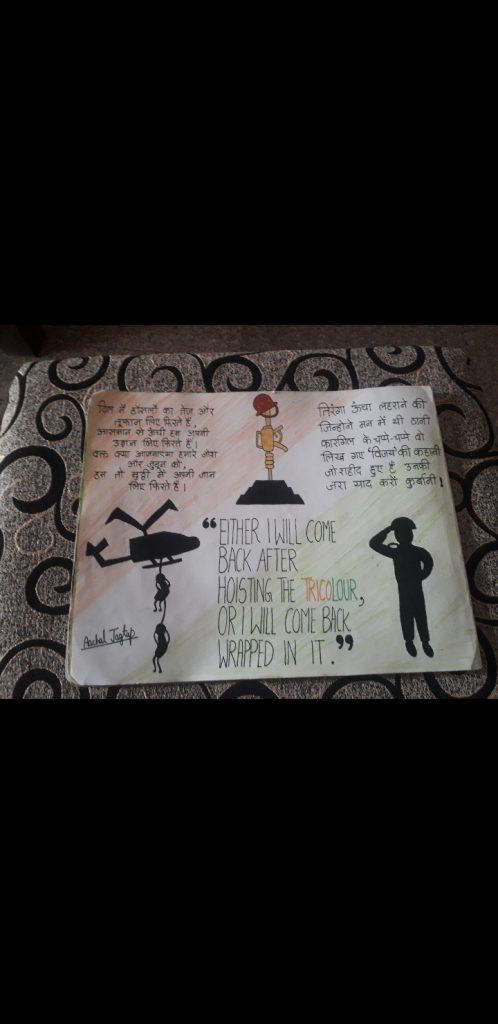 दिल में हौसलों का तेज और
तूफान लिए फिरते हैं,
आसमान से ऊंची हम अपनी
उड़ान लिए फिरते हैं।
वक्त क्या आजमाएगा हमारे जोश
और जुनून को,
हम तो मुठ्ठी में अपनी जान
लिए फिरते हैं।
तिरंगा ऊँचा लहराने की
जिन्होंने मन में थी ठानी
कारगिल के चप्पे-चप्पे वो
लिख गए 'विजय' की कहानी
जो शहीद हुए है उनकी
जरा याद करो कुर्बानी!
"EITHER I WILL COME
BACK AFTER
HOISTING THE TRICOLOUR,
OR I WILL COME BACK
WRAPPED IN IT."
Aachal Jagtap